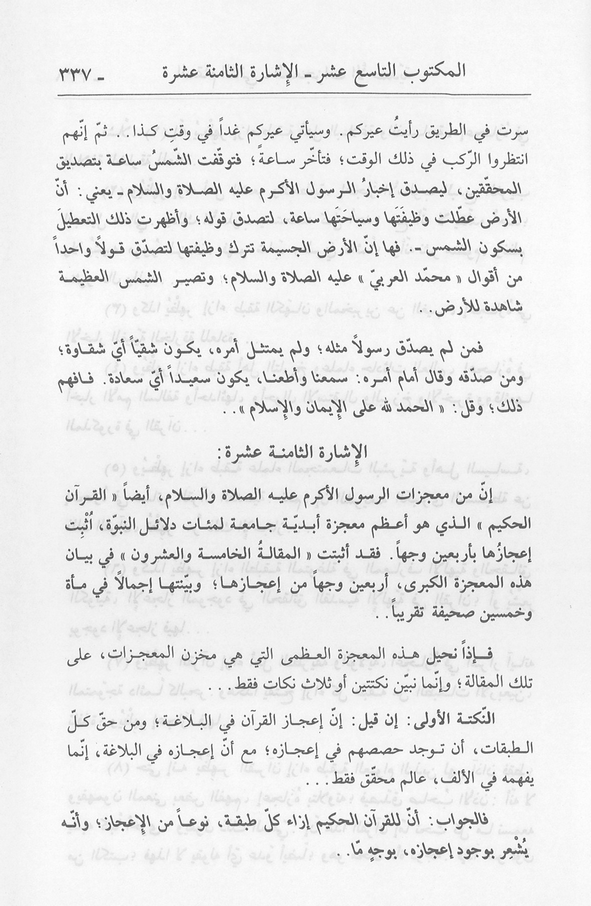 المكتوب التاسع عشر ـ الإشارة الثامنة عشرة ـ ٣٣٧
سرت في الطريق رأيتُ عيركم. وسيأتي عيركم غداً في وقتِ كذا.. ثمّ إنّهم
انتظروا الرّكب في ذلك الوقت؛ فتأخّر ساعةً؛ فتوقّفت الشّمسُ ساعة بتصديق
المحقّقين، ليصدق إخبارُ الرسول الأكرم عليه الصلاة والسلام ـ يعني: أنّ
الأرض عطّلت وظيفتَها وسياحَتَها ساعة، لتصدق قوله؛ وأظهرت ذلك التعطيلَ
بسكون الشمس ـ. فها إنّ الأرض الجسيمة تترك وظيفتها لتصدّق قولاً واحداً
من أقوال « محمّد العربيّ » عليه الصلاة والسلام؛ وتصير الشمس العظيمة
شاهدة للأرض..
فمن لم يصدّق رسولاً مثله؛ ولم يمتثل أمره، يكون شقيّاً أيّ شقاوة؛
ومن صدّقه وقال أمام أمره: سمعنا وأطعنا، يكون سعيداً أيّ سعادة. فافهم
ذلك؛ وقل: « الحمد لله على الإيمان والإسلام »..
الإشارة الثامنة عشرة:
إنّ من معجزات الرسول الأكرم عليه الصلاة والسلام، أيضاً « القرآن
الحكيم » الذي هو أعظم معجزة أبديّة جامعة لمئات دلائل النبوّة، أُثْبِت
إعجازُها بأربعين وجهاً. فقد أثبتت « المقالةُ الخامسة والعشرون » في بيان
هذه المعجزة الكبرى، أربعين وجهاً من إعجازها؛ وبيّنتها إجمالاً في مأة
وخمسين صحيفة تقريباً..
فإذاً نحيل هذه المعجزة العظمى التي هي مخزن المعجزات، على
تلك المقالة؛ وإنّما نبيّن نكتتين أو ثلاث نكات فقط...
النّكتة الأولى: إن قيل: إنّ إعجاز القرآن في البلاغة؛ ومن حقّ كلّ
الطبقات، أن توجد حصصهم في إعجازه؛ مع أنّ إعجازه في البلاغة، إنّما
يفهمه في الألف، عالم محقّق فقط...
فالجواب: أنّ للقرآن الحكيم إزاء كلّ طبقة، نوعاً من الإعجاز؛ وأنّه
يُشْعِر بوجود إعجازه، بوجهٍ مّا..